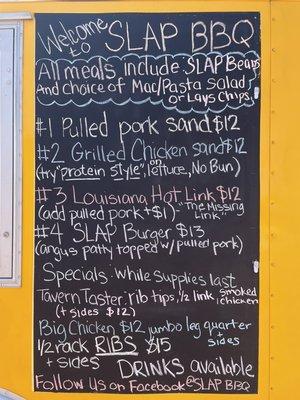 Welcome to SLAP BBQ
All meals include SLAP Beans
And choice of Mac/Pasta Salad
or Lays Chips.
#1 Pulled pork sand $12
#2 Grilled Chicken sand $12
(try "protein style", on lettuce, No Bun)
#3 Louisiana Hot Link $12
(add pulled pork +$1) - "The Missing Link"
#4 SLAP Burger $13
(angus patty topped w/pulled pork)
Specials: While Supplies last
Tavern Taster: rib tips, 1/2 link, smoked chicken
(+ sides $12)
Big Chicken $12 jumbo leg quarter + sides
1/2 rack RIBS $15
+ sides
DRINKS available
Follow Us on Facebook @SLAP BBQ